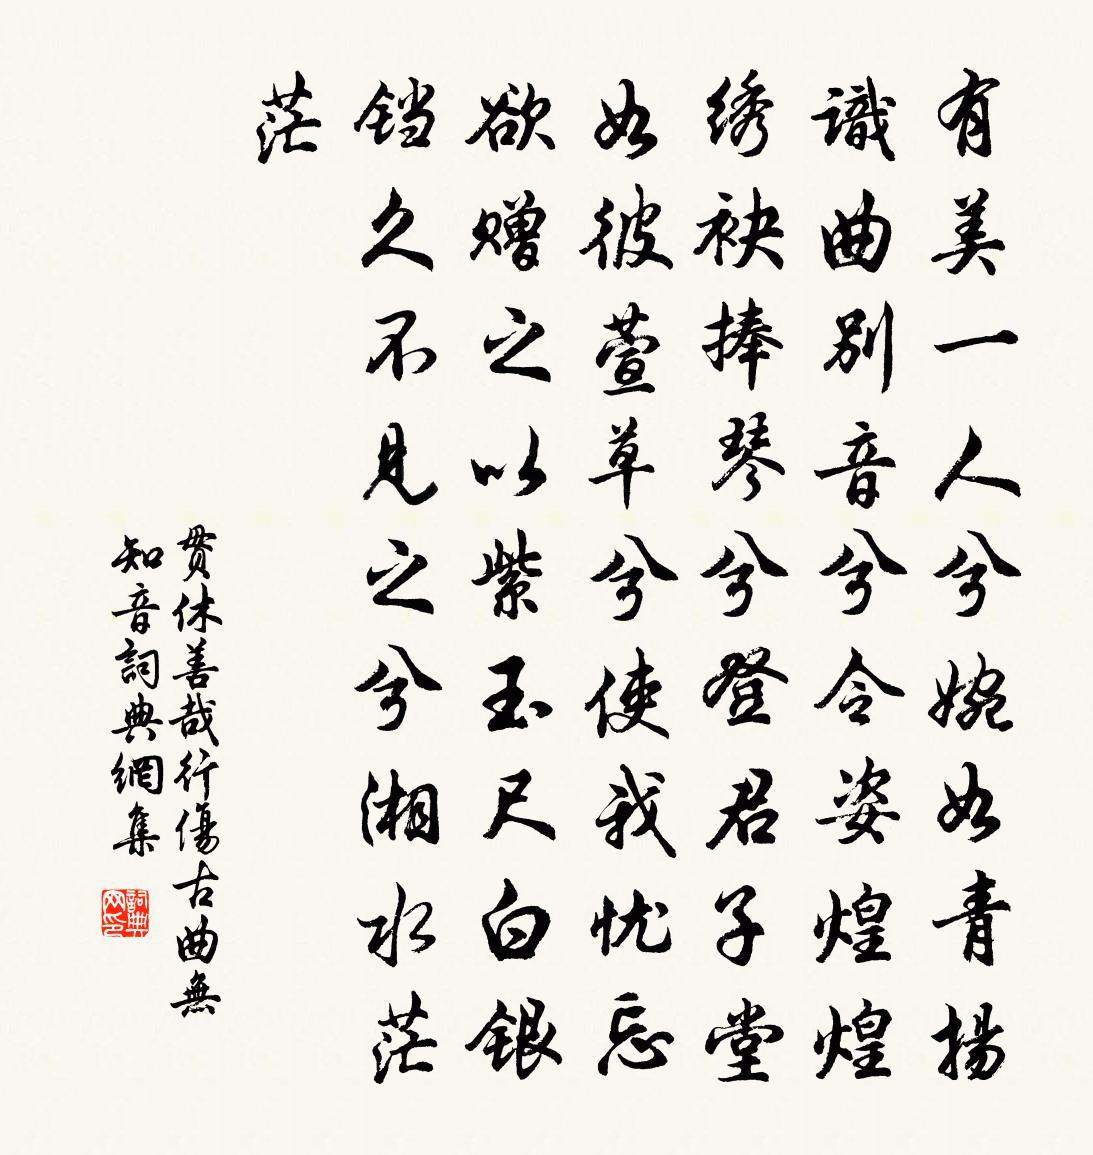 有美一人兮婉如青揚
識曲別音兮令姿煌煌
绣袂捧琴兮登君子堂
如彼萱草兮使我忧忘
欲赠之以紫玉尺白银
铛久不见之兮湘水茫
茫
贯休善哉行傷古曲無
知音詞典網集
詞典
网印